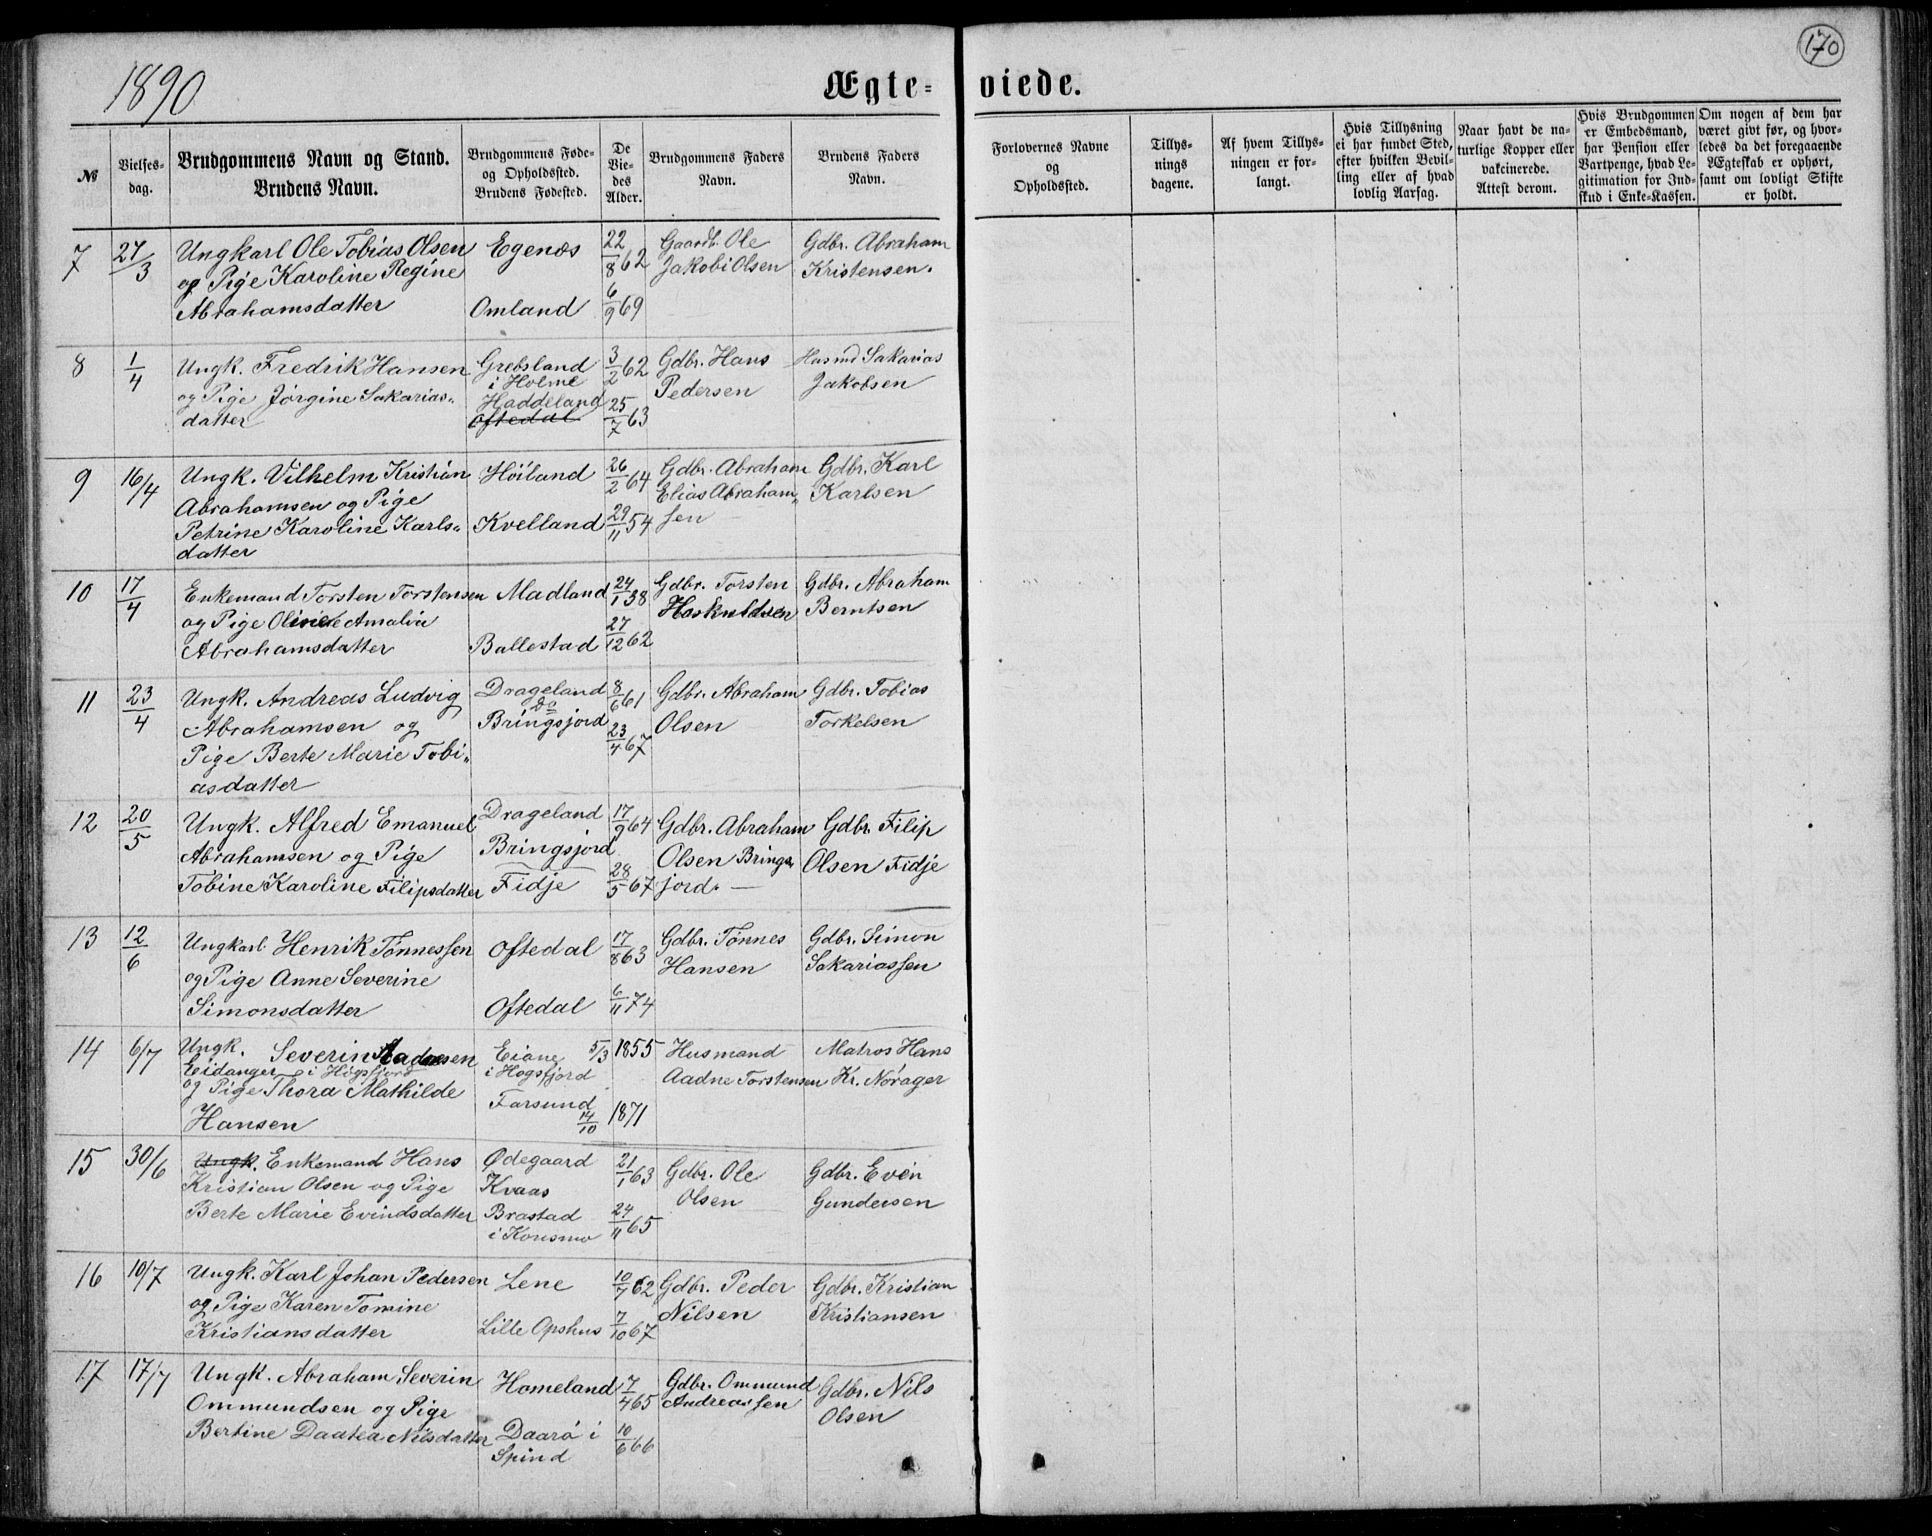 170
1890
Ægte= viede.
№
Vielses=
dag.
Brudgommens Navn og Stand.
Brudens Navn.
Brudgommens Føde=
og Opholdssted.
Brudens Fødested.
De
Vie=
des
Alder.
Brudgommens Faders
Navn.
Brudens Faders
Navn.
Forlovernes Navne
og
Opholdssted.
Tillys=
nings
dagene.
Af hvem Tillys=
ningen er for=
langt.
Hvis Tillysning
ei har fundet Sted,
efter hvilken Bevil=
ling eller af hvad
lovlig Aarsag.
Naar havt de na=
turlige Kopper eller
vakcinerede.
Attest derom.
Hvis Brudgommen
er Embedsmand,
har Pension eller
Vartpenge, hvad Le=
gitimation for Ind=
skud i Enke=Kassen.
Om nogen af dem har
været givt før, og hvor=
ledes da det foregaaende
Ægteskab er ophørt,
samt om lovligt Skifte
er holdt.
7 27/3 Ungkarl Ole Tobias Olsen Egenæs 22/8 62 Gaardb. Ole Gdbr. Abraham
og Pige Karoline Regine Jakobi Olsen Kristensen.
Abrahamsdatter Omland 6/9 69
8 1/4 Ungk. Fredrik Hansen Grebsland 3/2 62 Gdbr. Hans Husmd Sakarias
i Holme
og Pige Jørgine Sakarias= Haddeland 25/7 63 Pedersen Jakobsen
datter Oftedal
9 16/4 Ungk. Vilhelm Kristian Høiland 26/2 64 Gdbr. Abraham Gdbr. Karl
Abrahamsen og Pige Elias Abraham= Karlsen
Petrine Karoline Karls= Kvelland 29/11 54 sen
datter
10 17/4 Enkemand Torsten Torstensen Madland 24/1 38 Gdbr. Torsten Gdbr. Abraham
og Pige Oline Amalie Haskuldsen Berntsen
Abrahamsdatter Ballestad 27/12 62
11 23/4 Ungk. Andreas Ludvig Drageland 8/6 61 Gdbr. Abraham Gdbr. Tobias
Do
Abrahamsen og Bringsjord 23/4 67 Olsen Torkelsen
Pige Berte Marie Tobi=
asdatter
12 20/5 Ungk. Alfred Emanuel Drageland 17/9 64 Gdbr. Abraham Gdbr. Filip
Abrahamsen og Pige Bringsjord Olsen Brings= Olsen Fidje
Tobine Karoline Filipsdatter Fidje 28/5 67 jord. —
13 12/6 Ungkarl Henrik Tønnessen Oftedal 17/8 63 Gdbr. Tønnes Gdbr. Simon
og Pige Anne Severine Hansen Sakariassen
Simonsdatter Oftedal 6/11 74
14 6/7 Ungk. Severin Aadnesen Eiane 5/3 1855 Husmand Matros Hans
Eidanger i Høgsfjord i Høgsfjord
og Pige Thora Mathilde Aadne Torstensen Kr. Nørager
Hansen Farsund 14/10 1871
15 30/6 Ungk. Enkemand Hans Ødegaard 21/1 63 Gdbr. Ole Gdbr. Evin
Kristian Olsen og Pige Kvaas Olsen Gundersen
Berte Marie Evindsdatter Brastad 24/11 65
i Konsmo
16 10/7 Ungk. Karl Johan Pedersen Lene 10/7 62 Gdbr. Peder Gdbr. Kristian
og Pige Karen Tomine Nilsen Kristiansen
Kristiansdatter Lille Opshus 7/10 67
17 17/7 Ungk. Abraham Severin Homeland 7/4 65 Gdbr. Ommund Gdbr. Nils
Ommundsen og Pige Andreassen Olsen
Bertine Daatea Nilsdatter Daarø i 10/6 66
Spind